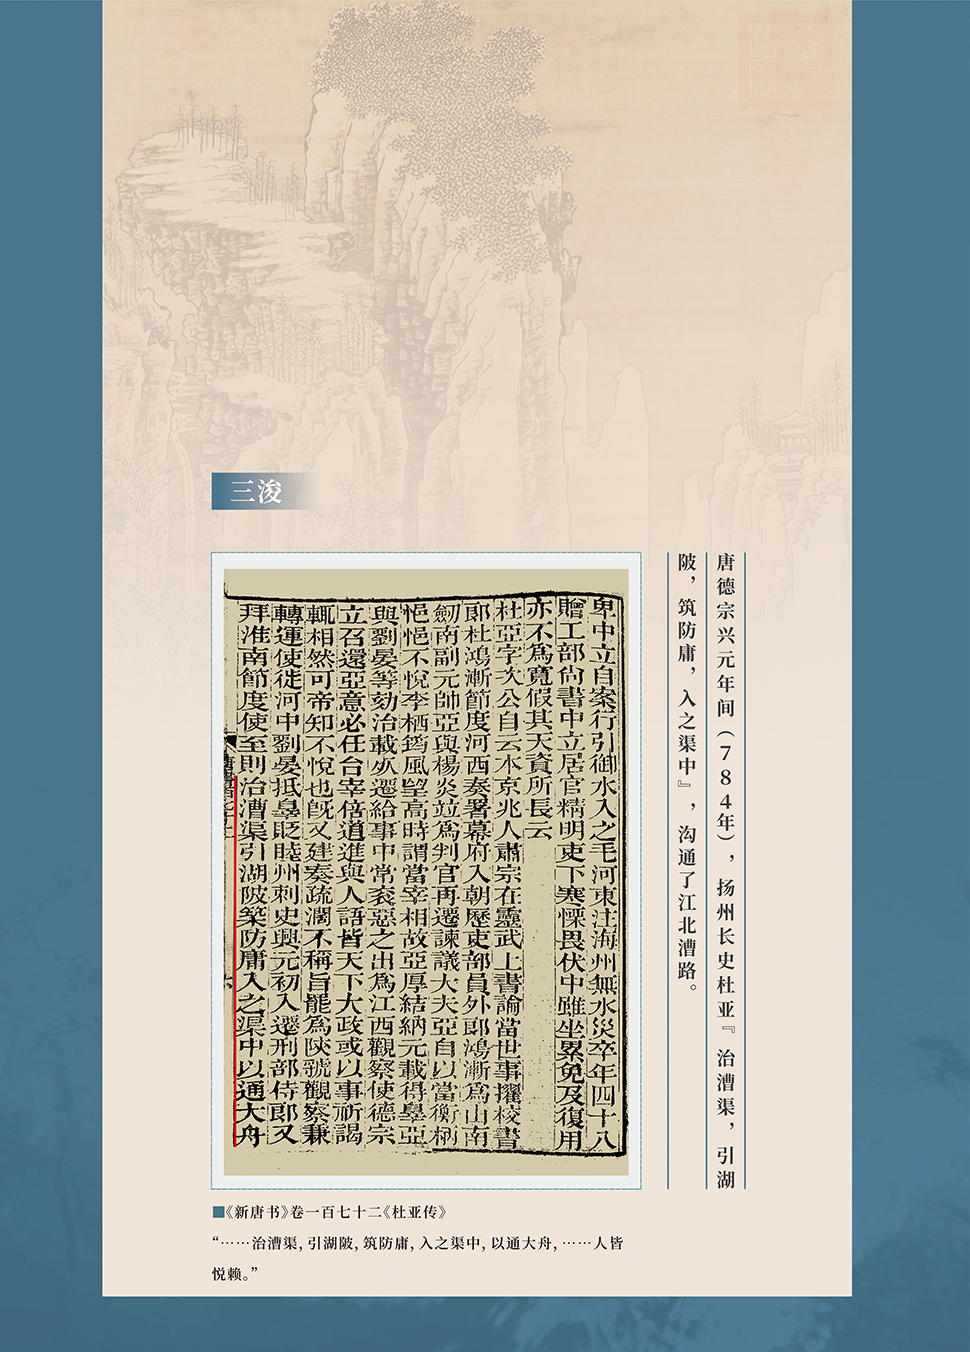 三浚
唐德宗兴元年间(784年)，扬州长史杜亚『治漕渠，引湖
陂，筑防庸，入之渠中』，沟通了江北漕路。
卑中立自案行引御水入之毛河東注海州無水災卒年四十八
贈工部尙書中立居官精明吏下寒慄畏伏中雖坐累免及復用
亦不爲寬假其天資所長云
杜亞字次公自云本京兆人肅宗在靈武上書論當世事擢校書
郞杜鴻漸節度河西奏署幕府入朝歷吏部員外郞鴻漸爲山南
劒南副元帥亞與楊炎竝爲判官再遷諫議大夫亞自以當衡柄
悒悒不悅李栖筠風望高時謂當宰相故亞厚結納元載得辠亞
與劉晏等劾治載死遷給事中常衮惡之出爲江西觀察使德宗
立召還亞意必任台宰倍道進與人語皆天下大政或以事祈謁
輒相然可帝知不悅也旣又建奏疏濶不稱旨罷爲陝號觀察兼
轉運使徙河中劉晏抵辠貶睦州刺史興元初入遷刑部侍郞又
拜淮南節度使至則治漕渠引湖陂築防庸入之渠中以通大舟
■《新唐书》卷一百七十二《杜亚传》
“……治漕渠, 引湖陂, 筑防庸, 入之渠中, 以通大舟, ……人皆
悦赖。”